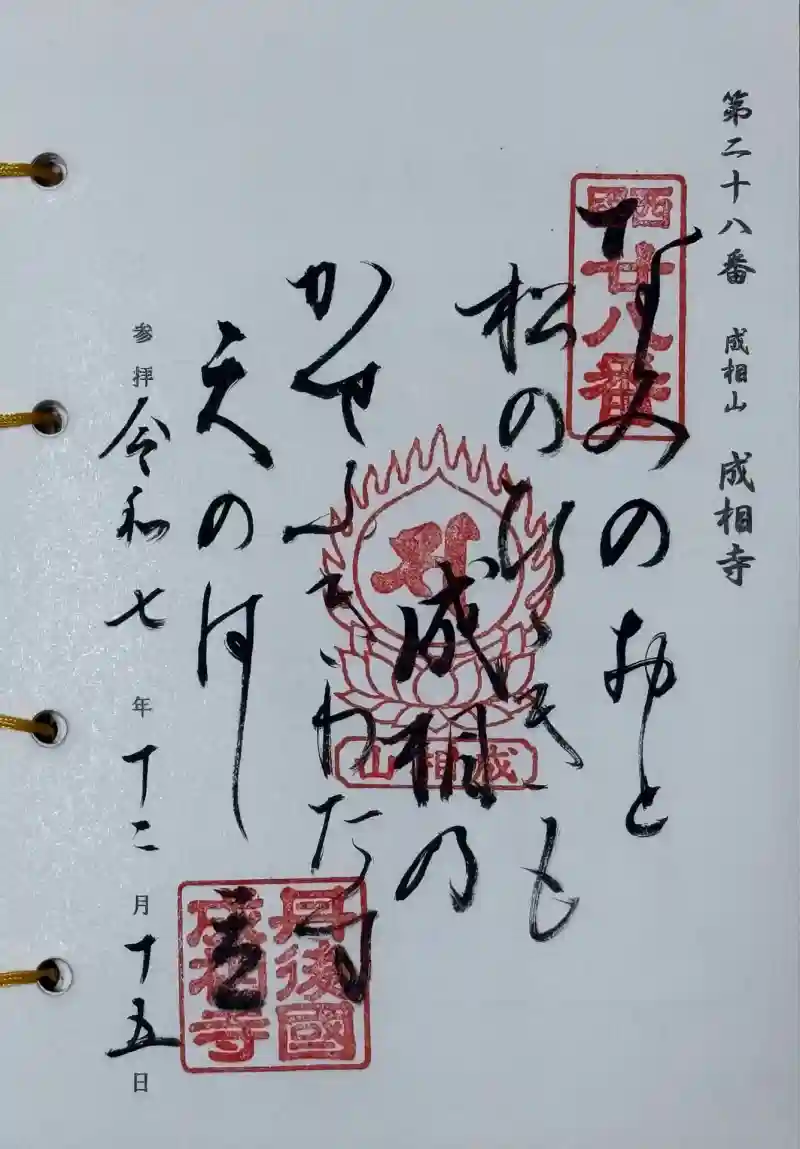 第二十八番 成相山 成相寺
西國
廿八番
なみのおと
松のひゞきも
成相乃
成相山
かせふきわたす
天のはし立
丹後國
成相寺
参拝 令和七年十二月十五日